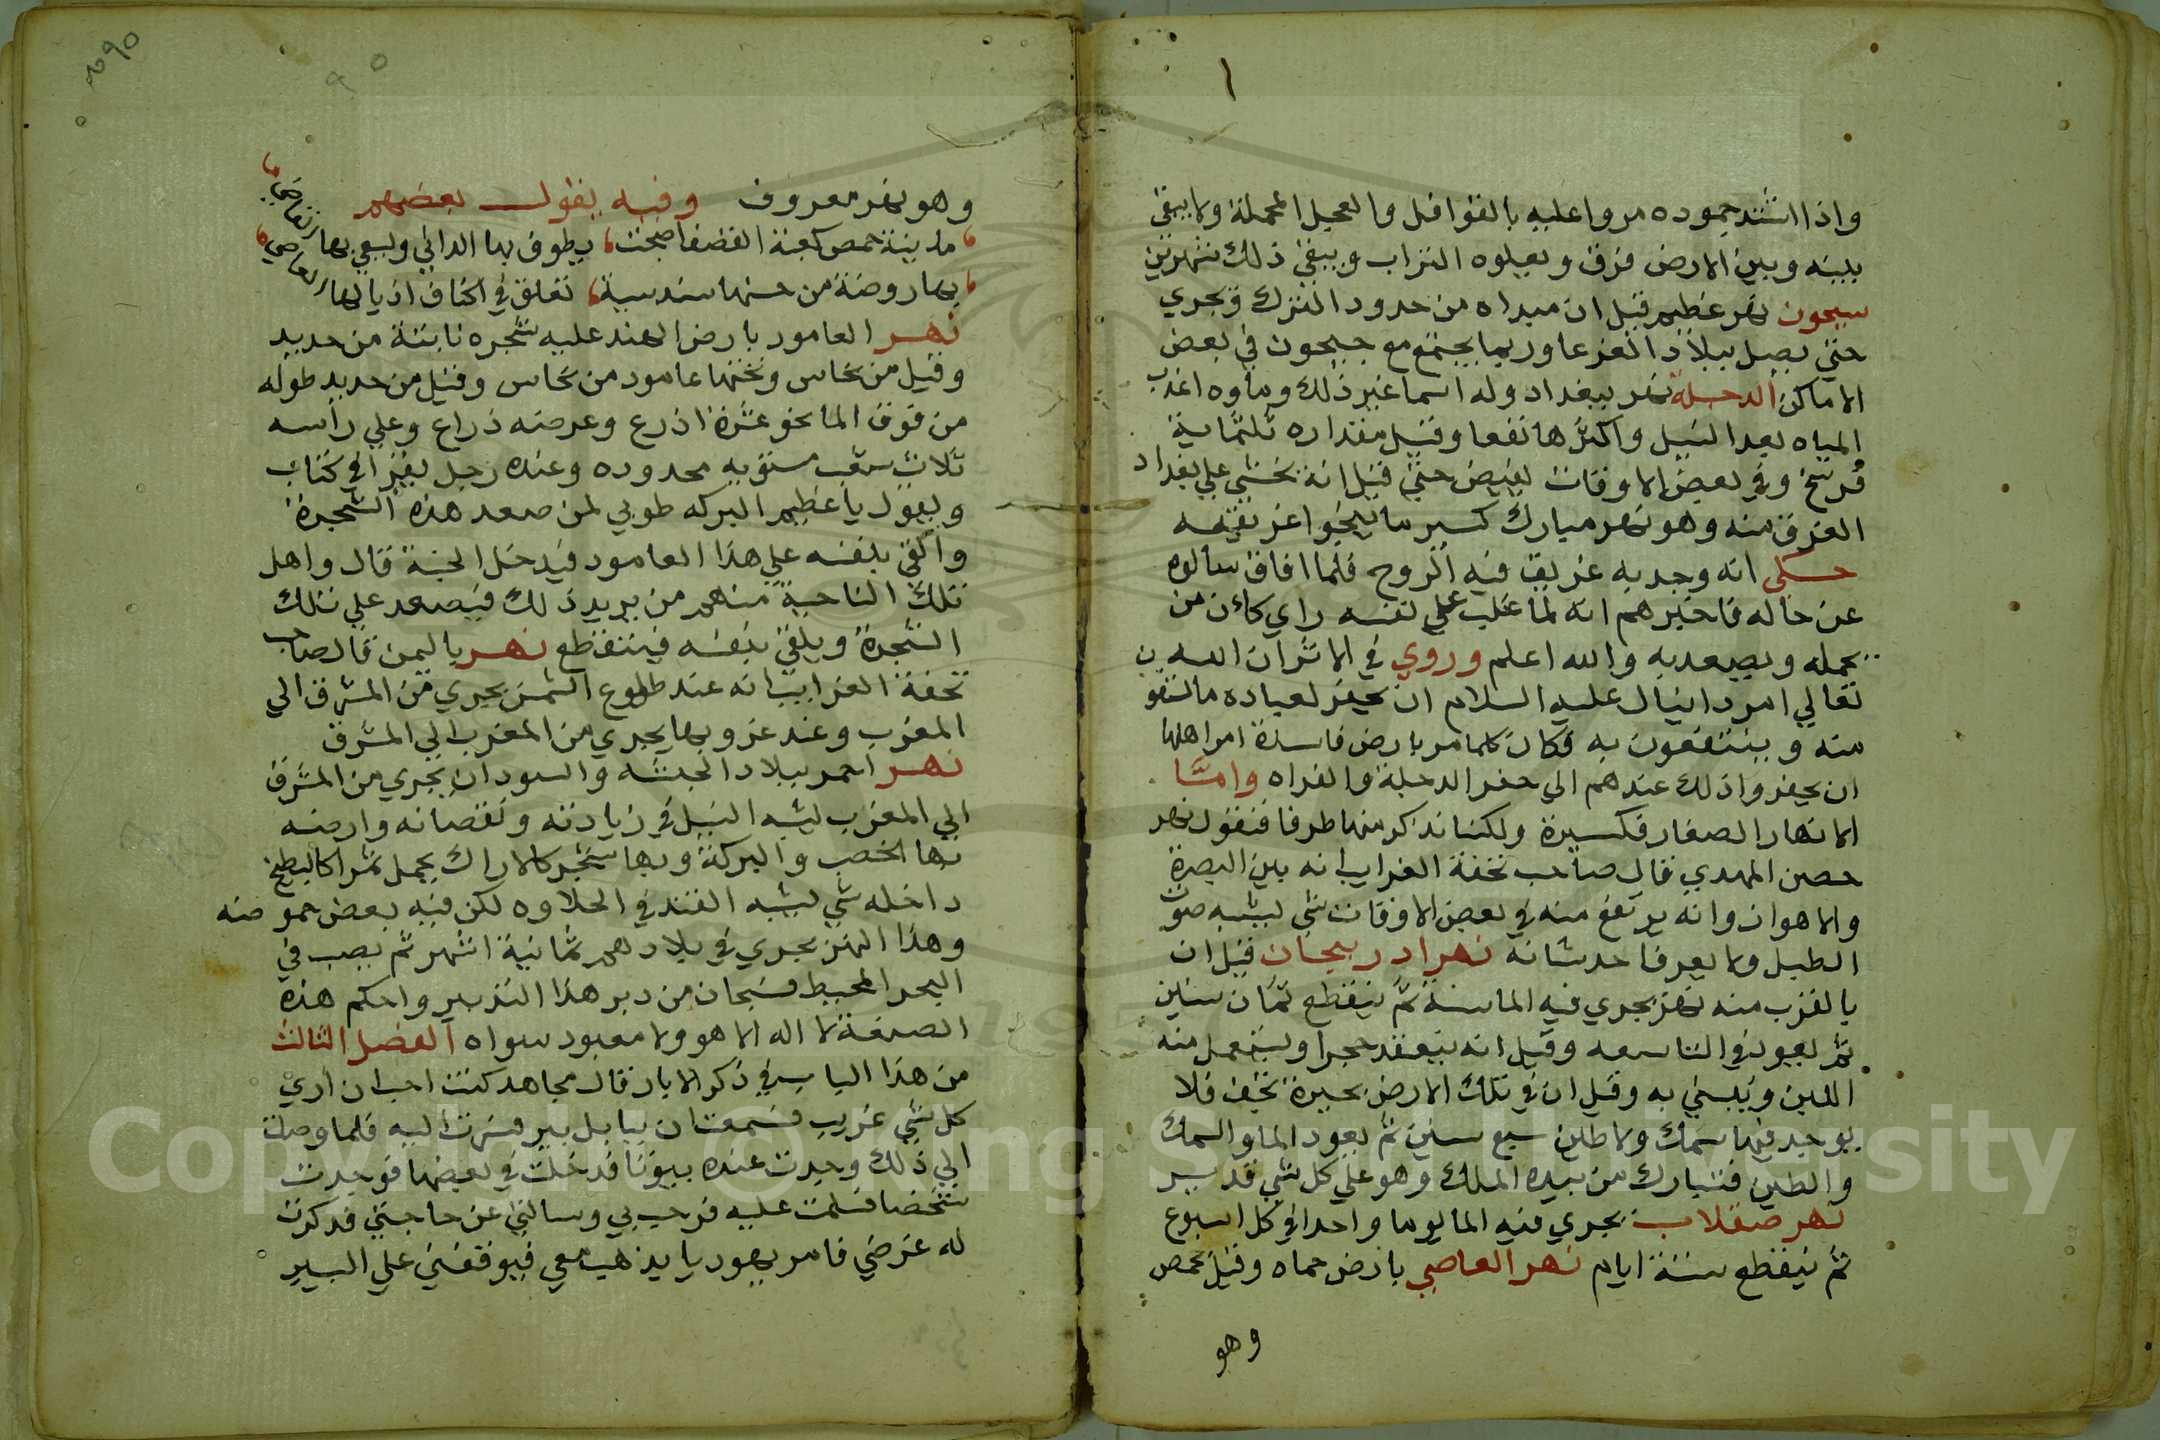 واذا اشتد جموده مروا عليه بالقوافل والعجل المحملة ولا يبقى
بينه وبين الارض فرق ويعلوه التراب ويبقي ذلك شهرين
سيحون نهر عظيم قيل ان مبداه من حدود الترك ويجري
حتي يصل ببلاد الغز عا وربما يجتمع مع جيحون في بعض
الاماكن الدجلة نهر ببغداد وله اسما غير ذلك وماوه اعذب
المياه بعد النيل واكثرها نفعا وقيل مقداره ثلثماية
فرسخ وفي بعض الاوقات يفيض حتي قيل انه يخشي علي بغداد
الغرق منه وهو نهر مبارك كسير ما ينجوا غريقه
حكي انه وجد به غريق فيه الروح فلما افاق سالوه
عن حاله فاخبرهم انه لما غلب علي نفسه راي كان من
يحمله ويصعد به والله اعلم وروي في الاثر ان الله
تعالي امر دانيال عليه السلام ان يحفر لعباده ما يستقو
منه وينتفعون به فكان كلما مر بارض فاسدة امر اهلها
ان يحفروا ذلك عندهم الي حفر الدجلة والفراه وامّا
الانهار الصغار فكسيرة ولكننا نذكر منها طرفا فنقول نهر
حصن المهدي قال صاحب تحفة الغرايب انه بين البصرة
والاهواز وانه يرتفع منه في بعض الاوقات شي يشبه صوت
الطبل ولا يعرف احد شانه نهر ادربيجان قيل ان
بالقرب منه نهر يجري فيه الما سنة ثم ينقطع ثمان سنين
ثم يعود في التاسعه وقيل انه ينعقد حجرا ويستعمل منه
اللبن ويبني به وقيل ان في تلك الارض بحيرة تجف فلا
يوجد فيها سمك ولا طين سبع سنين ثم يعود الما والسمك
والطين فتبارك من بيده الملك وهو علي كل شي قدير
نهر صقلاب يجري فيه الما يوما واحدا في كل اسبوع
ثم ينقطع ستة ايام نهر العاصي بارض حماه وقيل بحمص
وهو
وهو نهر معروف وفيه يقول بعضهم
مدينة حمص كعبة القصف اصبحت يطوف بها الداني ويسعي بها القاصي
بها روضة من حسنها سندسية تعلق في اكناف اذيالها العاصي
نهر العامود بارض الهند عليه شجره نابتة من حديد
وقيل من نحاس وتحتها عامود من نحاس وقيل من حديد طوله
من فوق الما نحو عشرة اذرع وعرضه ذراع وعلي راسه
ثلاث شعب مستويه محدوده وعنده رجل يقرا في كتاب
ويقول يا عظيم البركه طوبي لمن صعد هذه الشجرة
والقي بنفسه علي هذا العامود فيدخل الجنة قال واهل
تلك الناحية منهم من يريد ذلك فيصعد علي تلك
الشجرة ويلقي بنفسه فيتقطع نهر باليمن قال صاحب
تحفة الغرايب انه عند طلوع الشمس يجري من المشرق الي
المغرب وعند غروبها يجري من المغرب الي المشرق
نهر احمر ببلاد الحبشه والسودان يجري من المشرق
الي المغرب يشبه النيل في زيادته ونقصانه وارضه
بها الخصب والبركة وبها شجر كالاراك يحمل ثمرا كالبطيخ
داخله شي يشبه القند في الحلاوه لكن فيه بعض حموضه
وهذا النهر يجري في بلادهم ثمانية اشهر ثم يصب في
البحر المحيط فسبحان من دبر هذا التدبير واحكم هذه
الصنعة لا اله الا هو ولا معبود سواه الفصل الثالث
من هذا الباب في ذكر الابار قال مجاهد كنت احب ان اري
كل شي غريب فسمعت ان ببابل بير فسرت اليه فلما وصلت
الي ذلك وجدت عنده بيوتا فدخلت في بعضها فوجدت
شخصا فسلمت عليه فرحب بي وسالني عن حاجتي فدكرت
له غرضي فامر يهوديا يذهب معي فيوقفني علي البير
Copyright © King Saud University